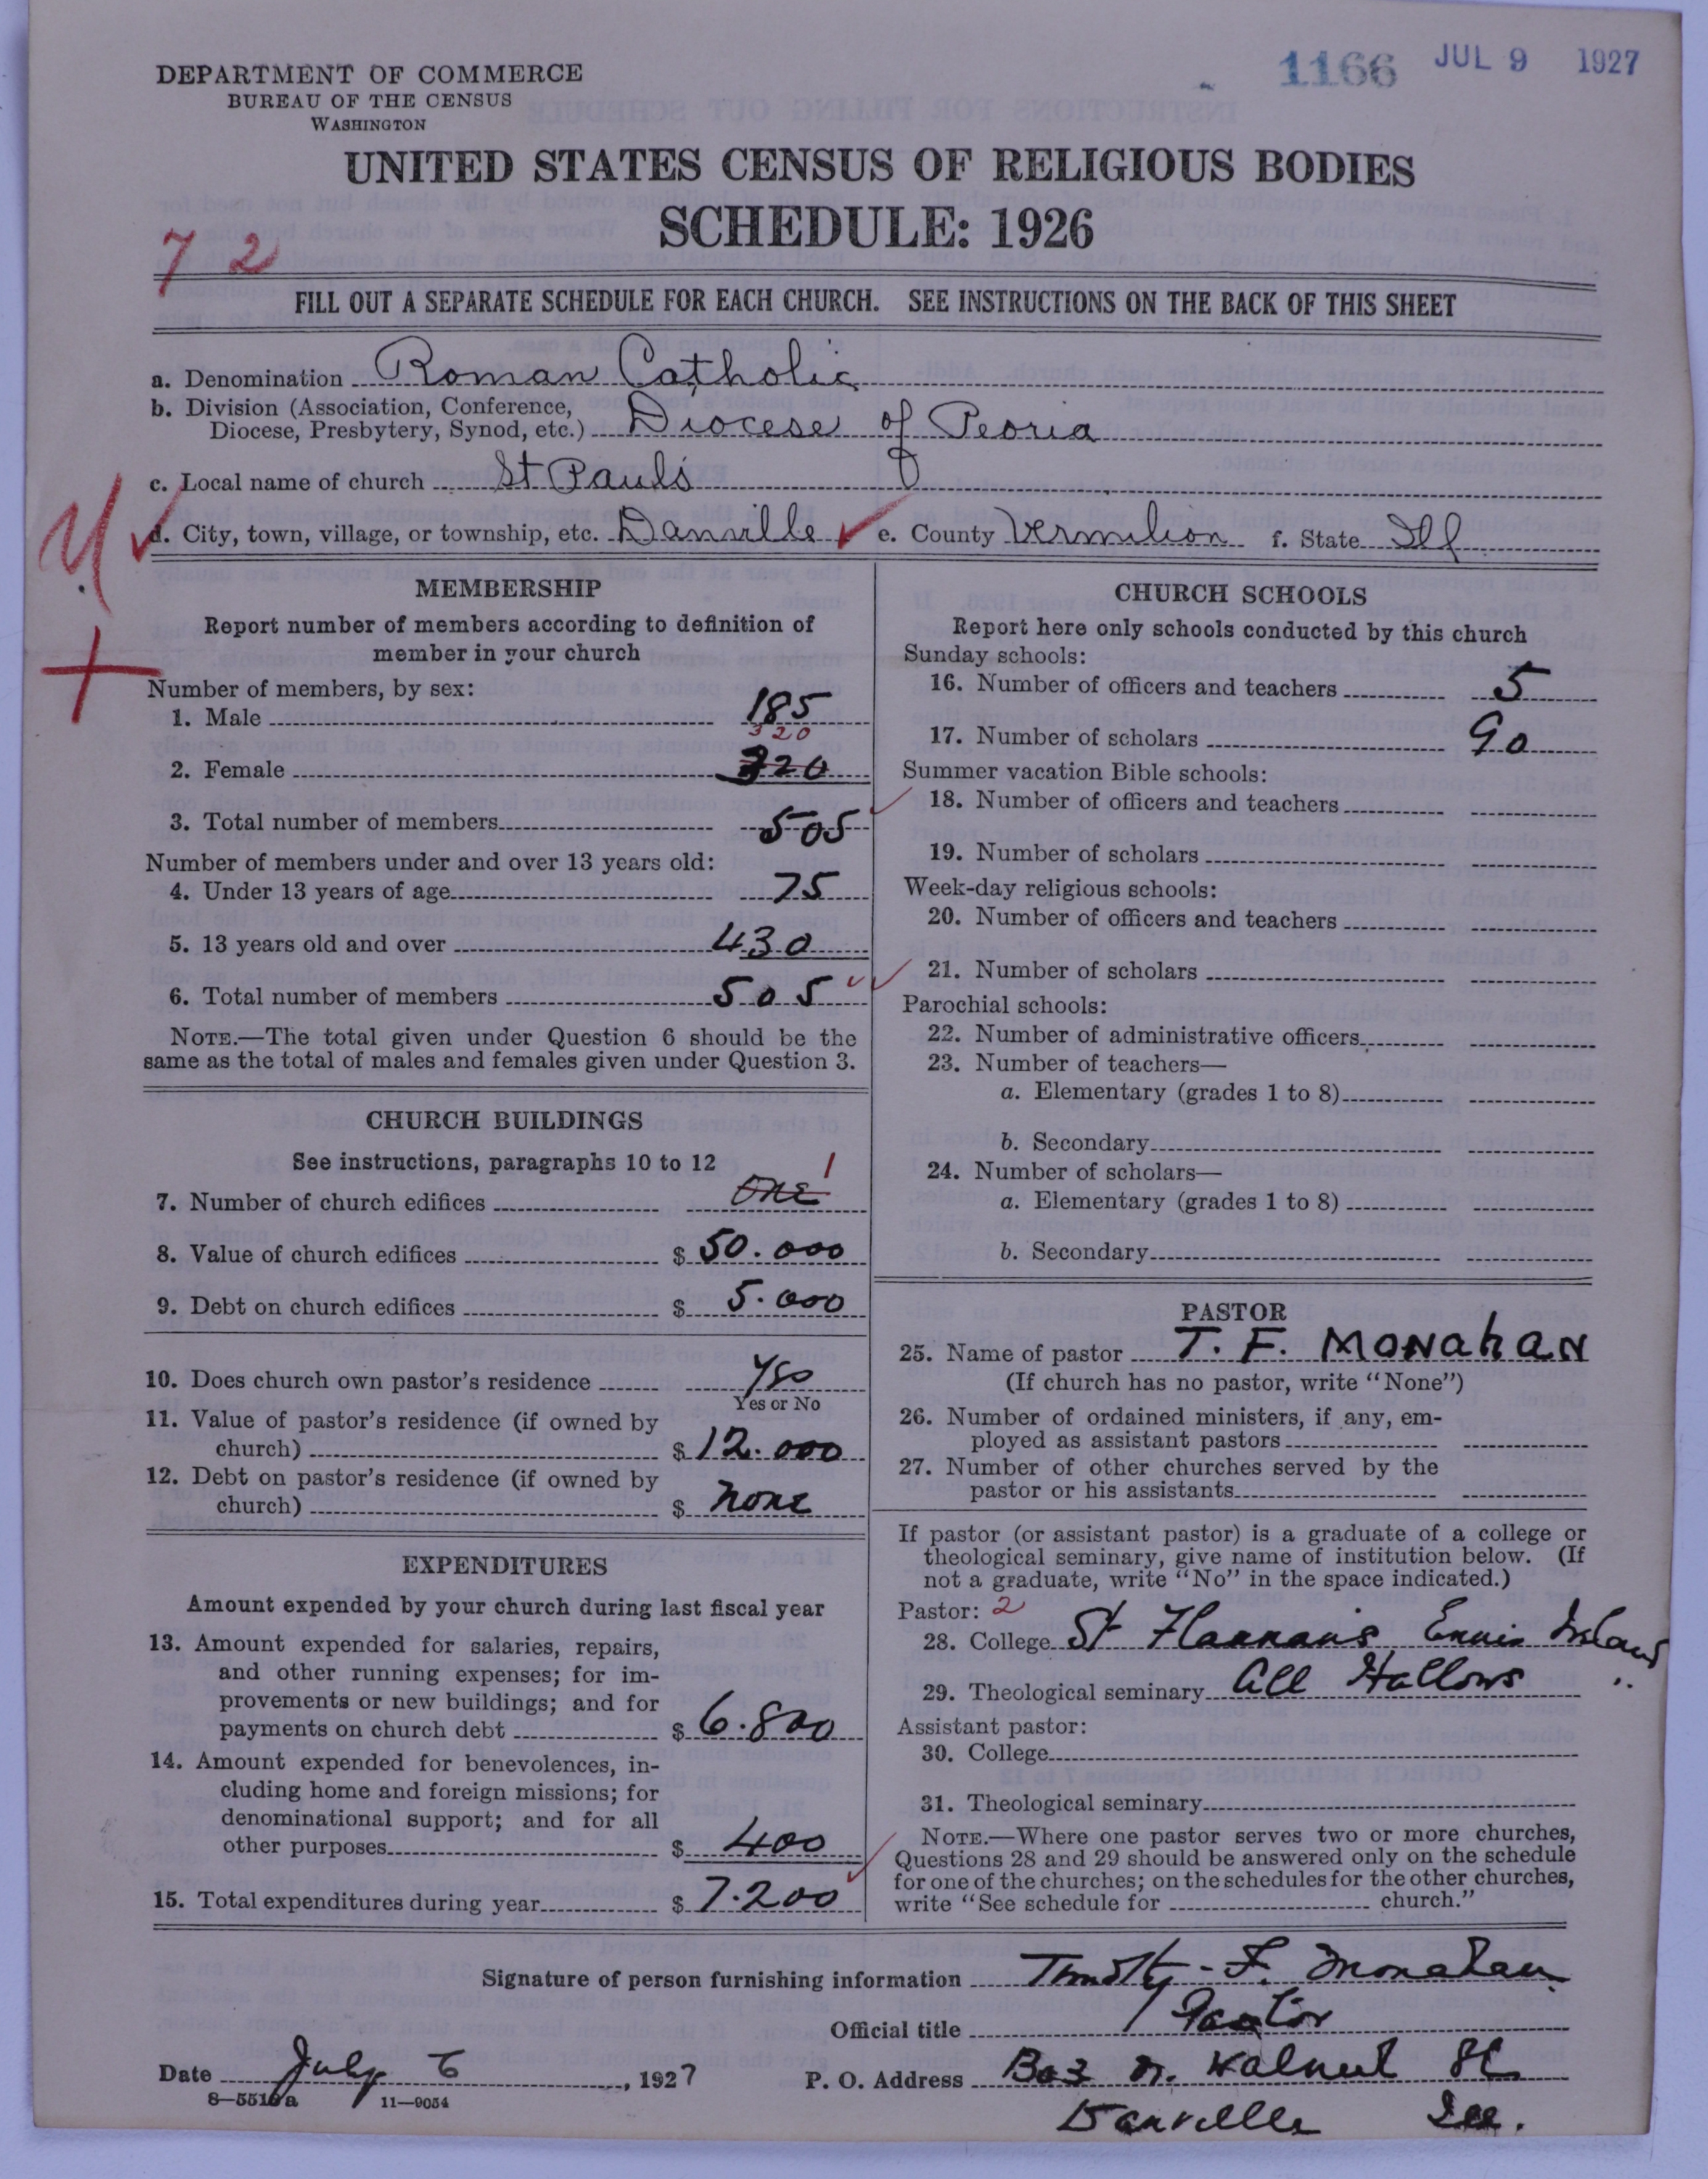 1166 JUL 9 1927
DEPARTMENT OF COMMERCE
BUREAU OF THE CENSUS
WASHINGTON
UNITED STATES CENSUS OF RELIGIOUS BODIES
SCHEDULE: 1926
72
FILL OUT A SEPARATE SCHEDULE FOR EACH CHURCH. SEE INSTRUCTIONS ON THE BACK OF THIS SHEET
a. Denomination Roman Catholic
b. Division (Association, Conference,
Diocese, Presbytery, Synod, etc.) Diocese of Peoria
c. Local name of church St Paul's
d. City, town, village, or township, etc. Danville e. County Vermilion f. State Ill
MEMBERSHIP
Report number of members according to definition of
member in your church
Number of members, by sex:
1. Male 185
320
2. Female 320
3. Total number of members 505
Number of members under and over 13 years old:
4. Under 13 years of age 75
5. 13 years old and over 430
6. Total number of members 505
NOTE.—The total given under Question 6 should be the
same as the total of males and females given under Question 3.
CHURCH BUILDINGS
See instructions, paragraphs 10 to 12
1
7. Number of church edifices One
8. Value of church edifices $ 50.000
9. Debt on church edifices $ 5.000
10. Does church own pastor's residence Yes
Yes or No
11. Value of pastor's residence (if owned by
church) $ 12.000
12. Debt on pastor's residence (if owned by
church) $ none
EXPENDITURES
Amount expended by your church during last fiscal year
13. Amount expended for salaries, repairs,
and other running expenses; for im-
provements or new buildings; and for
payments on church debt $ 6.800
14. Amount expended for benevolences, in-
cluding home and foreign missions; for
denominational support; and for all
other purposes $ 400
15. Total expenditures during year $ 7.200
CHURCH SCHOOLS
Report here only schools conducted by this church
Sunday schools:
16. Number of officers and teachers 5
17. Number of scholars 90
Summer vacation Bible schools:
18. Number of officers and teachers
19. Number of scholars
Week-day religious schools:
20. Number of officers and teachers
21. Number of scholars
Parochial schools:
22. Number of administrative officers
23. Number of teachers—
a. Elementary (grades 1 to 8)
b. Secondary
24. Number of scholars—
a. Elementary (grades 1 to 8)
b. Secondary
PASTOR
25. Name of pastor T. F. Monahan
(If church has no pastor, write "None")
26. Number of ordained ministers, if any, em-
ployed as assistant pastors
27. Number of other churches served by the
pastor or his assistants
If pastor (or assistant pastor) is a graduate of a college or
theological seminary, give name of institution below. (If
not a graduate, write "No" in the space indicated.)
Pastor: 2
28. College St Flannans Ennis Ireland
29. Theological seminary All Hallows "
Assistant pastor:
30. College
31. Theological seminary
NOTE.—Where one pastor serves two or more churches,
Questions 28 and 29 should be answered only on the schedule
for one of the churches; on the schedules for the other churches,
write "See schedule for church."
Signature of person furnishing information Timothy F. Monahan
Official title Pastor
Date July 6, 1927 P. O. Address 803 N. Walnut St
8—5516a 11—9054
Danville Ill.